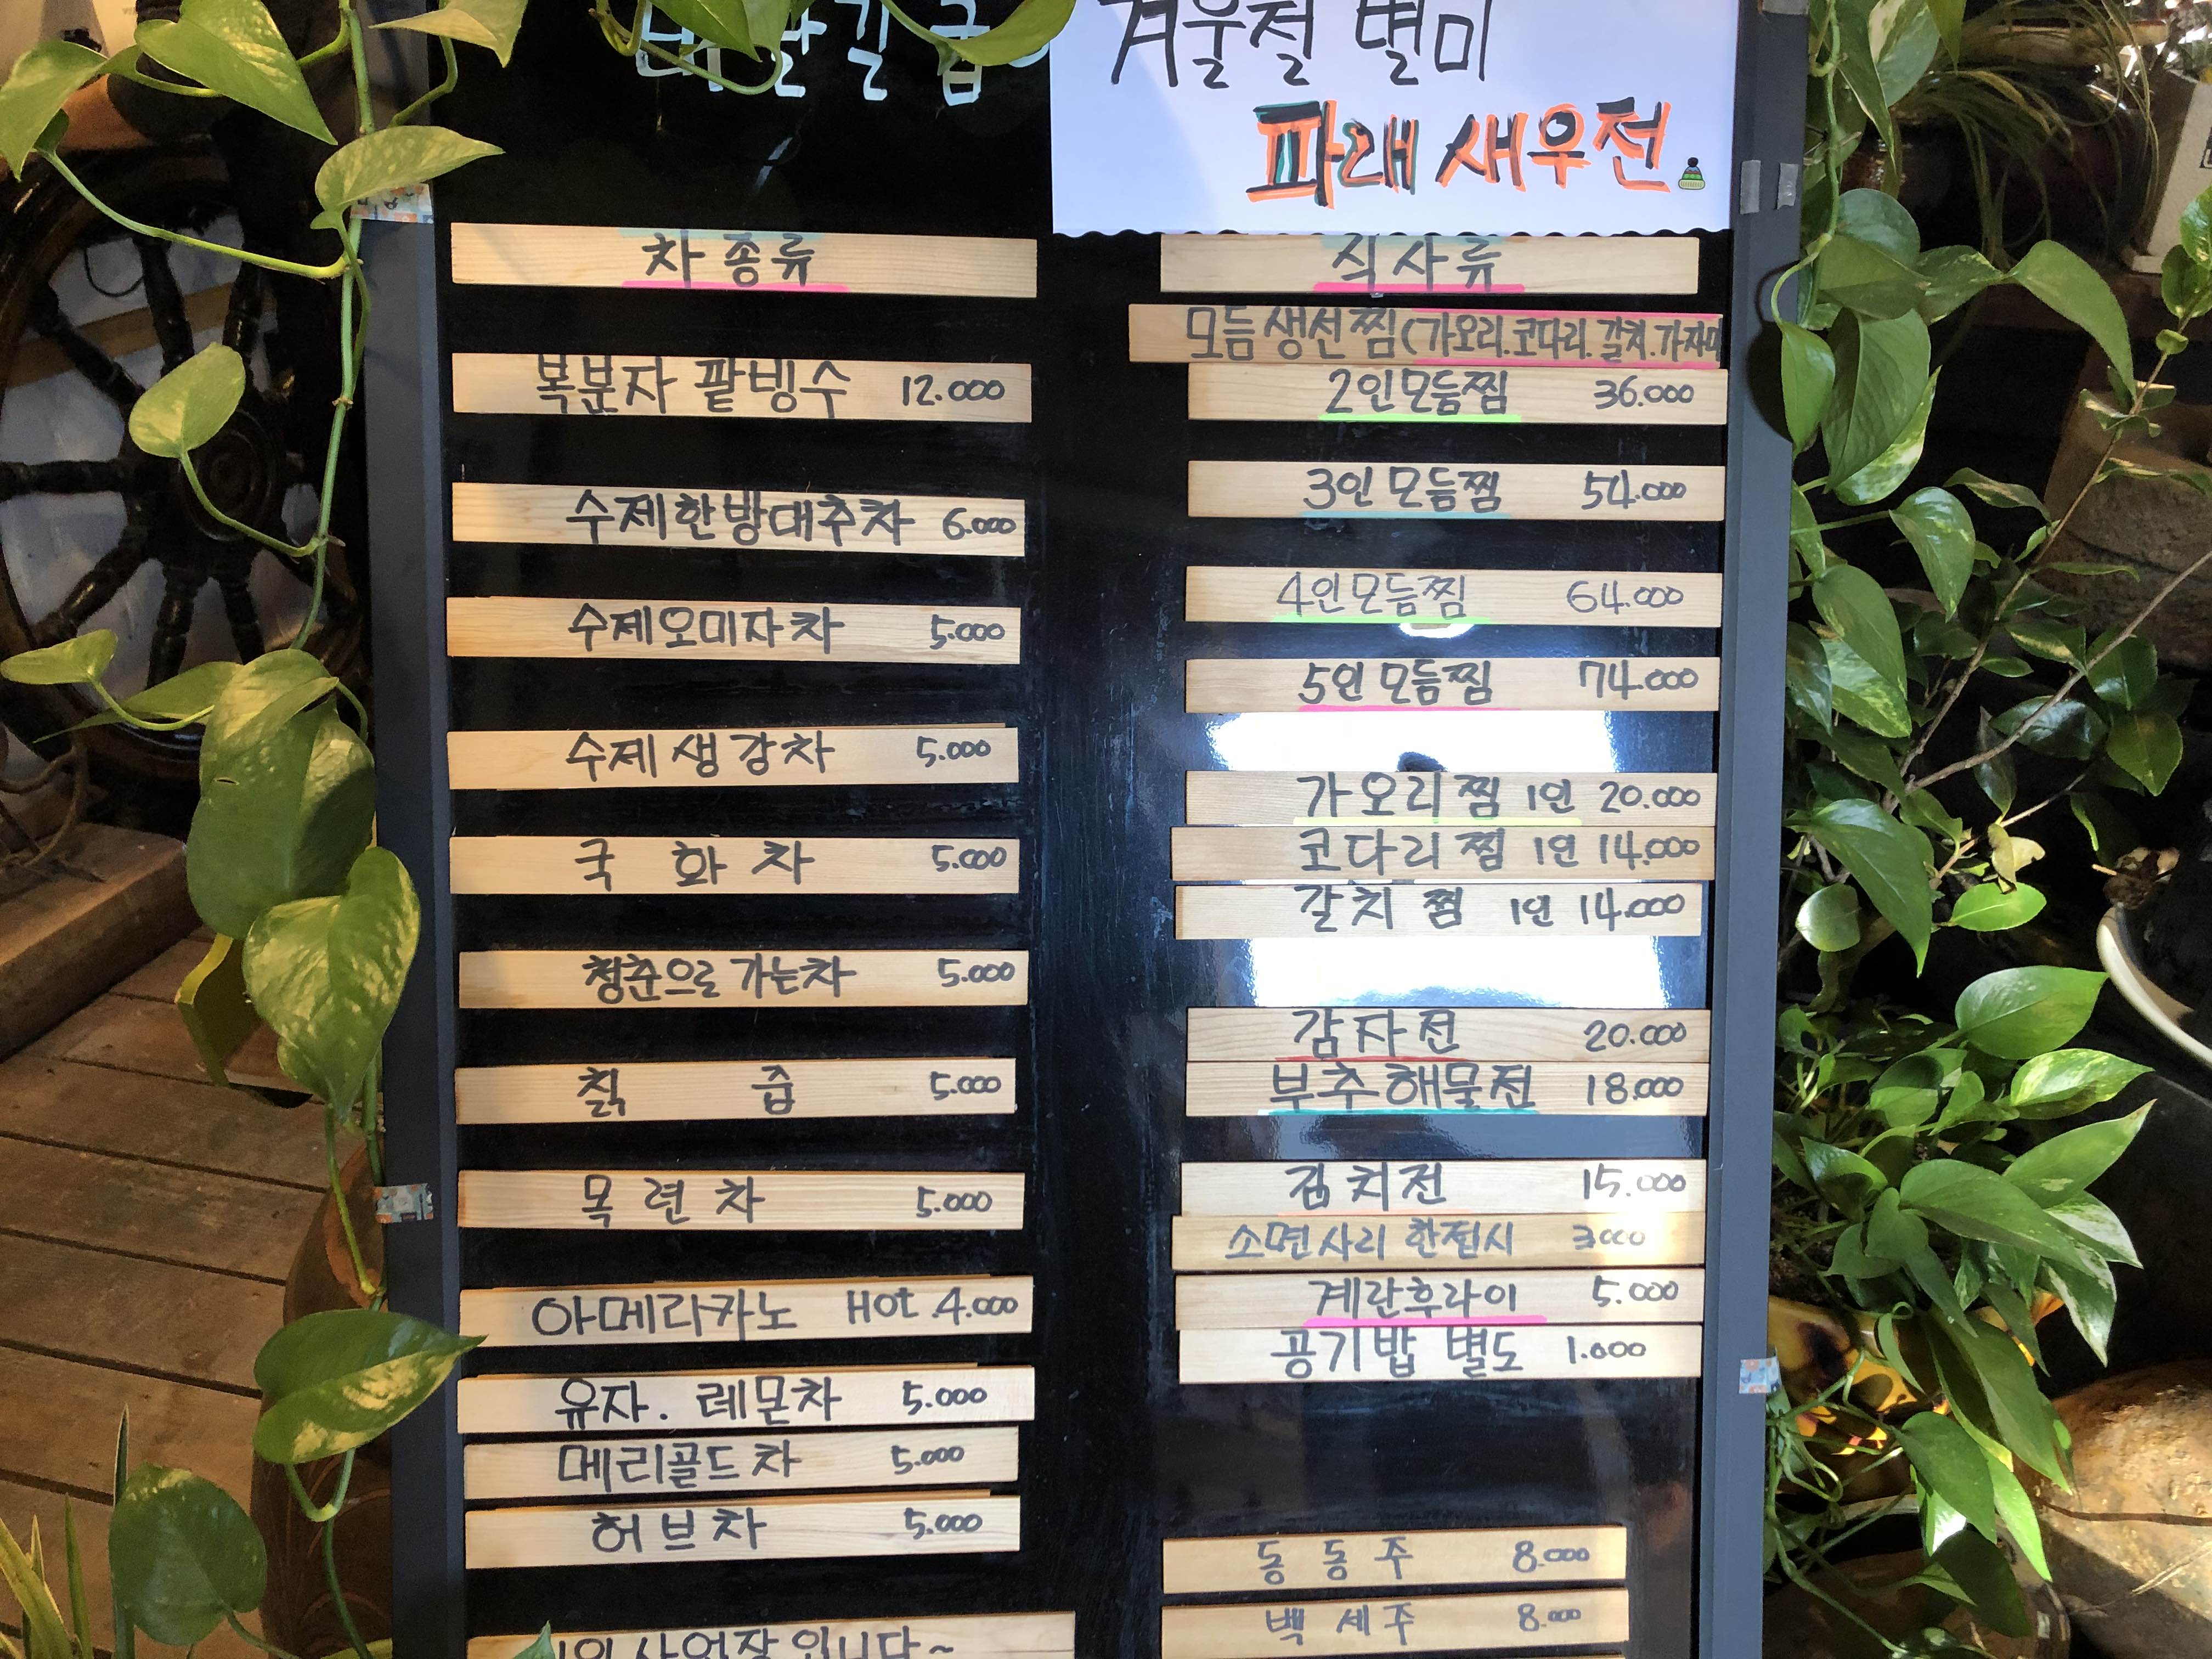 겨울철 별미
파래 새우전
차 종류
복분자 팥빙수 12.000
수제한방대추차 6.000
수제오미자차 5.000
수제생강차 5.000
국 화 차 5.000
청춘으로 가는차 5.000
칡 즙 5.000
목 련 차 5.000
아메리카노 Hot.4.000
유자. 레몬차 5.000
메리골드차 5.000
허브차 5.000
사업장입니다~
식사류
모듬생선찜(가오리.코다리.갈치.가자미
2인모듬찜 36.000
3인모듬찜 54.000
4인모듬찜 64.000
5인모듬찜 74.000
가오리찜 1인 20.000
코다리찜 1인 14.000
갈치찜 1인 14.000
감자전 20.000
부추해물전 18.000
김치전 15.000
소면사리 한접시 3000
계란후라이 5.000
공기밥 별도 1.000
동 동 주 8.000
백 세 주 8.000